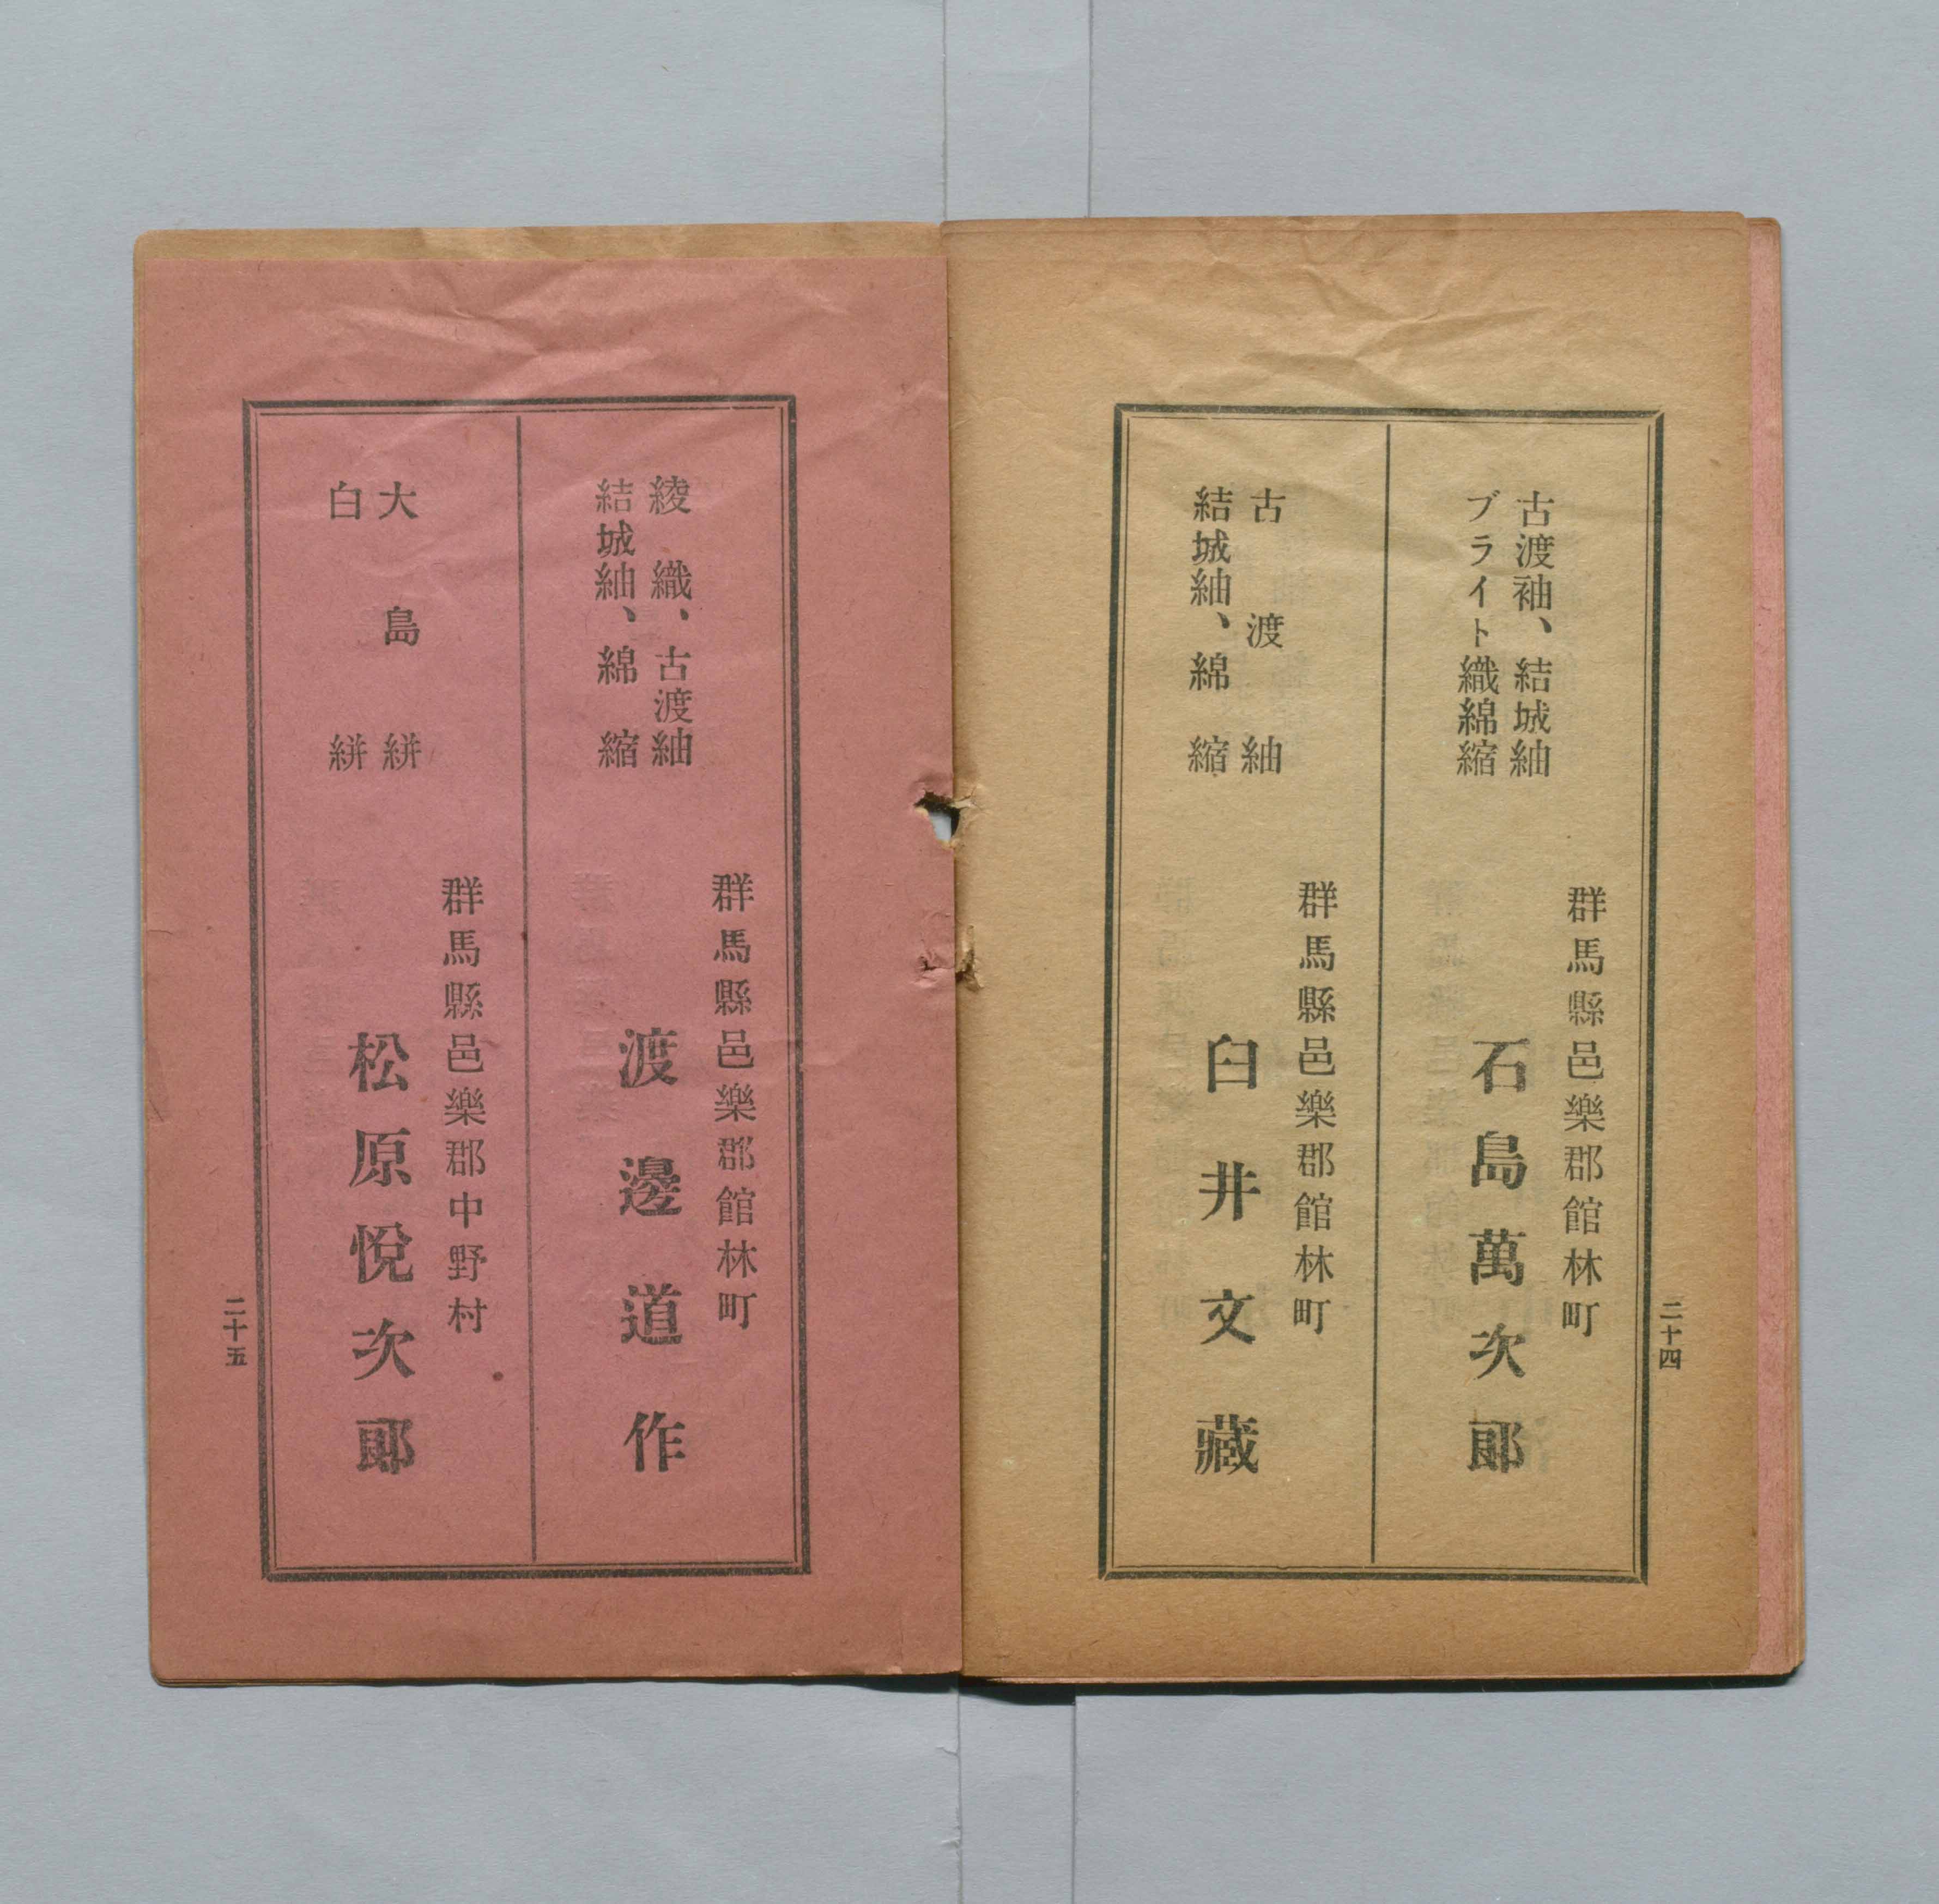 古渡袖、結城紬
ブライト織綿縮
群馬縣邑樂郡館林町
石島萬次郎
古渡紬
結城紬、綿縮
群馬縣邑樂郡館林町
臼井文藏
二十四
綾織、古渡紬
結城紬、綿縮
群馬縣邑樂郡館林町
渡邊道作
大島絣
白絣
群馬縣邑樂郡中野村
松原悅次郎
二十五